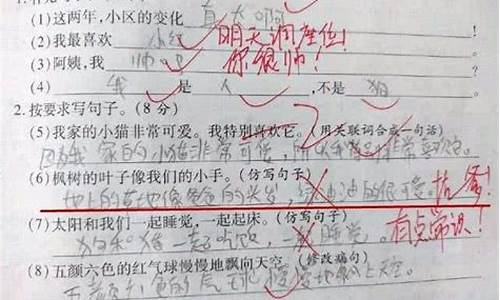 (1)这两年,小区的变化 真大啊
(2)我最喜欢 小红 明天调座位!
(3)阿姨,我 帅吧 你很帅!
(4) 我 是 人 ,不是 狗
2.按要求写句子。(8 分)
(5)我家的小猫非常可爱。我特别喜欢它。(用关联词合成一句话)
因为我家的小猫非常可爱,所以我 非常喜欢它。
(6)枫树的叶子像我们的小手。(仿写句子)
地上的草地像爸爸的头发,绿油油的很 。 抗爹!
(7)太阳和我们一起睡觉,一起起床。(仿写句子)
狗和猪一起吃饭,一起睡觉。 有点常识!
(8)五颜六色的红气球慢慢地飘向天空。(修改病句)
五颜六色的气球慢慢地飘上天空。